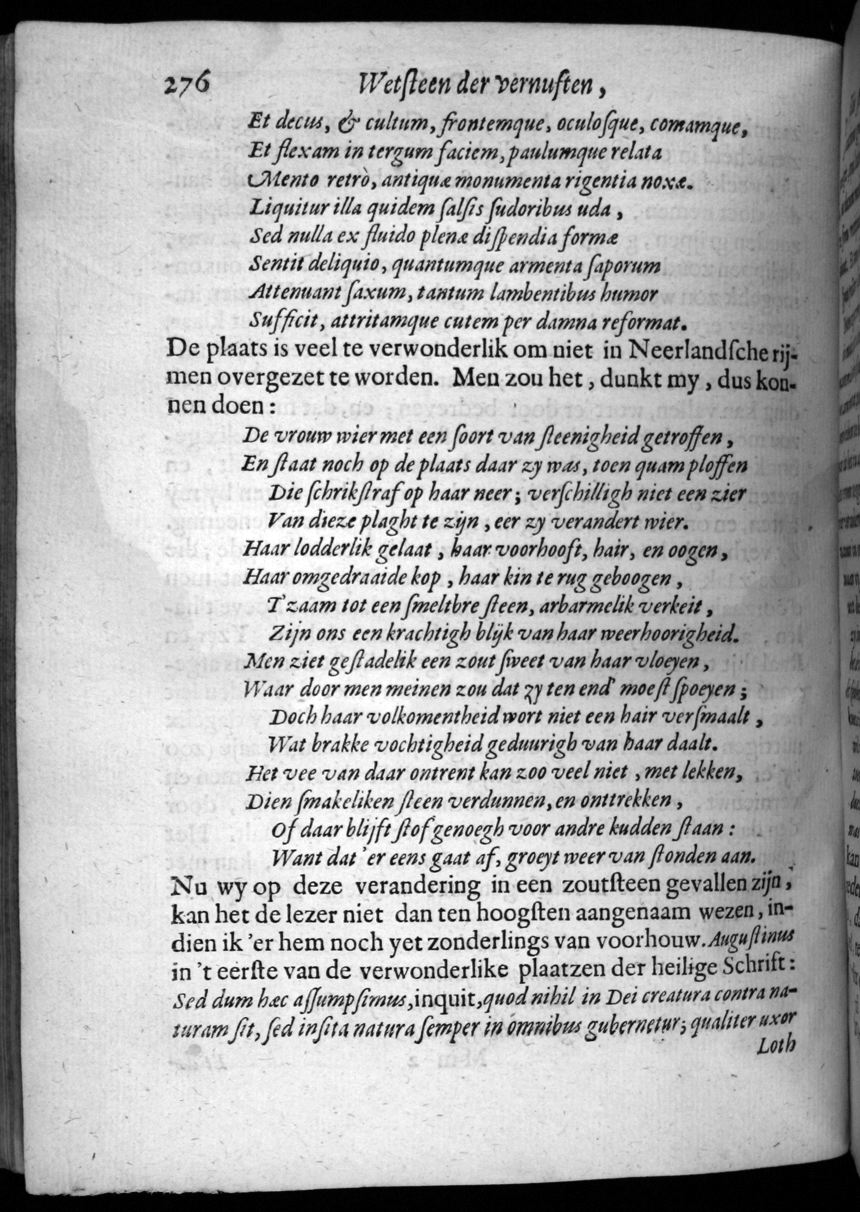 276 Wetſteen der vernuften,
Et decus, & cultum, frontemque, oculoſque, comamque,
Et flexam in tergum faciem, paulumque relata
Mento retrò, antiquæ monumenta rigentia noxæ.
Liquitur illa quidem ſalſis ſudoribus uda,
Sed nulla ex fluido plenæ diſpendia formæ
Sentit deliquio, quantumque armenta ſaporum
Attenuant ſaxum, tantum lambentibus humor
Sufficit, attritamque cutem per damna reformat.
De plaats is veel te verwonderlik om niet in Neerlandſche rij-
men overgezet te worden. Men zou het, dunkt my, dus kon-
nen doen:
De vrouw wier met een ſoort van ſteenigheid getroffen,
En ſtaat noch op de plaats daar zy was, toen quam ploffen
Die ſchrikſtraf op haar neer; verſchilligh niet een zier
Van dieze plaght te zijn, eer zy verandert wier.
Haar lodderlik gelaat, haar voorhooft, hair, en oogen,
Haar omgedraaide kop, haar kin te rug geboogen,
T'zaam tot een ſmeltbre ſteen, arbarmelik verkeit,
Zijn ons een krachtigh blijk van haar weerhoorigheid.
Men ziet geſtadelik een zout ſweet van haar vloeyen,
Waar door men meinen zou dat zy ten end' moeſt ſpoeyen;
Doch haar volkomentheid wort niet een hair verſmaalt,
Wat brakke vochtigheid geduurigh van haar daalt.
Het vee van daar ontrent kan zoo veel niet, met lekken,
Dien ſmakeliken ſteen verdunnen, en onttrekken,
Of daar blijft ſtof genoegh voor andre kudden ſtaan:
Want dat 'er eens gaat af, groeyt weer van ſtonden aan.
Nu wy op deze verandering in een zoutſteen gevallen zijn,
kan het de lezer niet dan ten hoogſten aangenaam wezen, in-
dien ik 'er hem noch yet zonderlings van voorhouw. Auguſtinus
in 't eerſte van de verwonderlike plaatzen der heilige Schrift:
Sed dum hæc aſſumpſimus, inquit, quod nihil in Dei creatura contra na-
turam ſit, ſed inſita natura ſemper in omnibus gubernetur; qualiter uxor
Loth